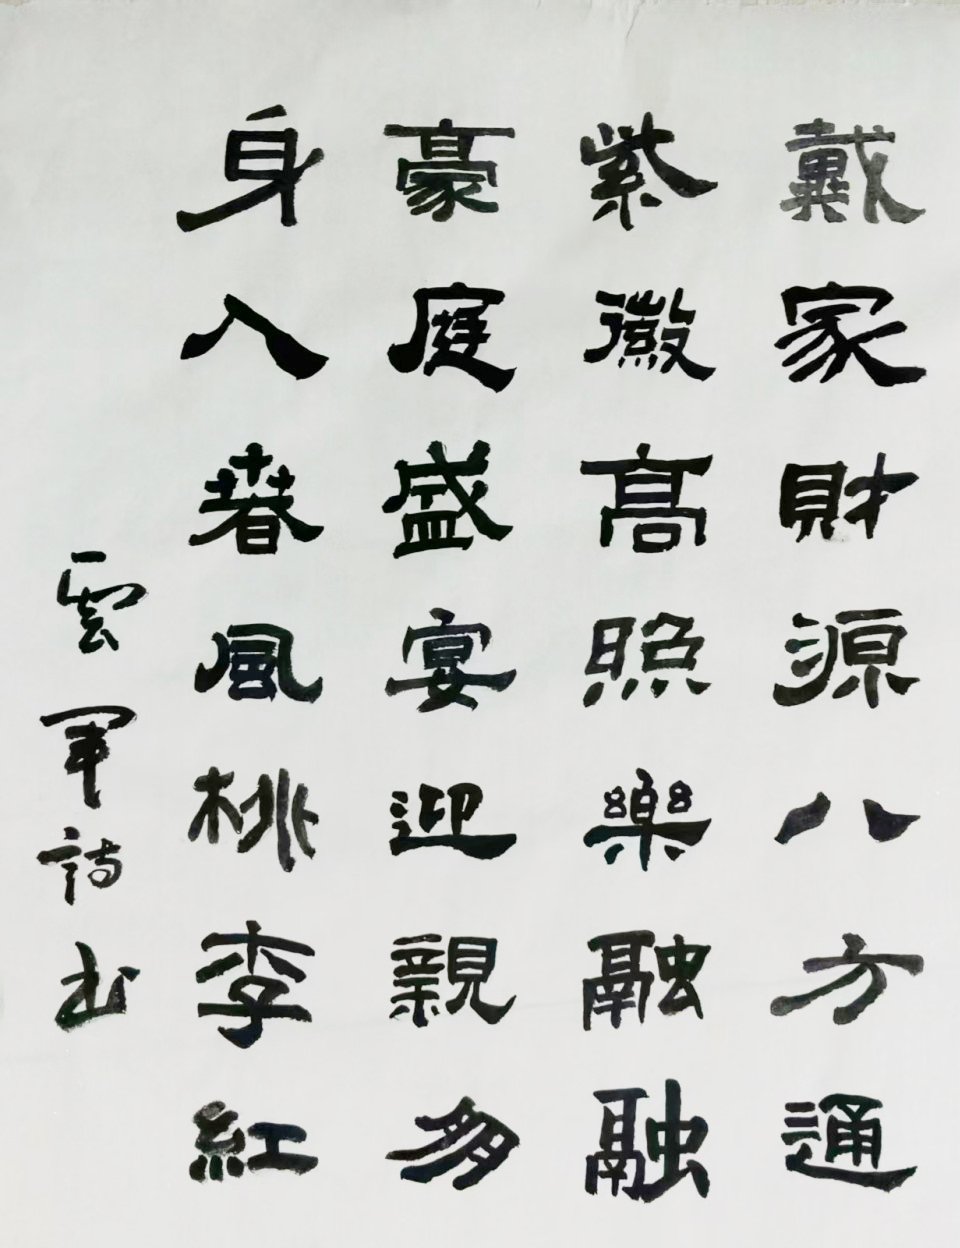 戴家財源八方通
紫徽高照樂融融
豪庭盛宴迎親多
身入春風桃李紅
雲軍詩书